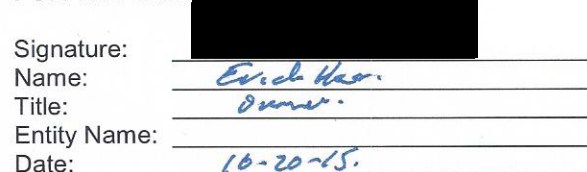 Signature:
Name: Erich Haas.
Title: Owner.
Entity Name:
Date: 10-20-15.